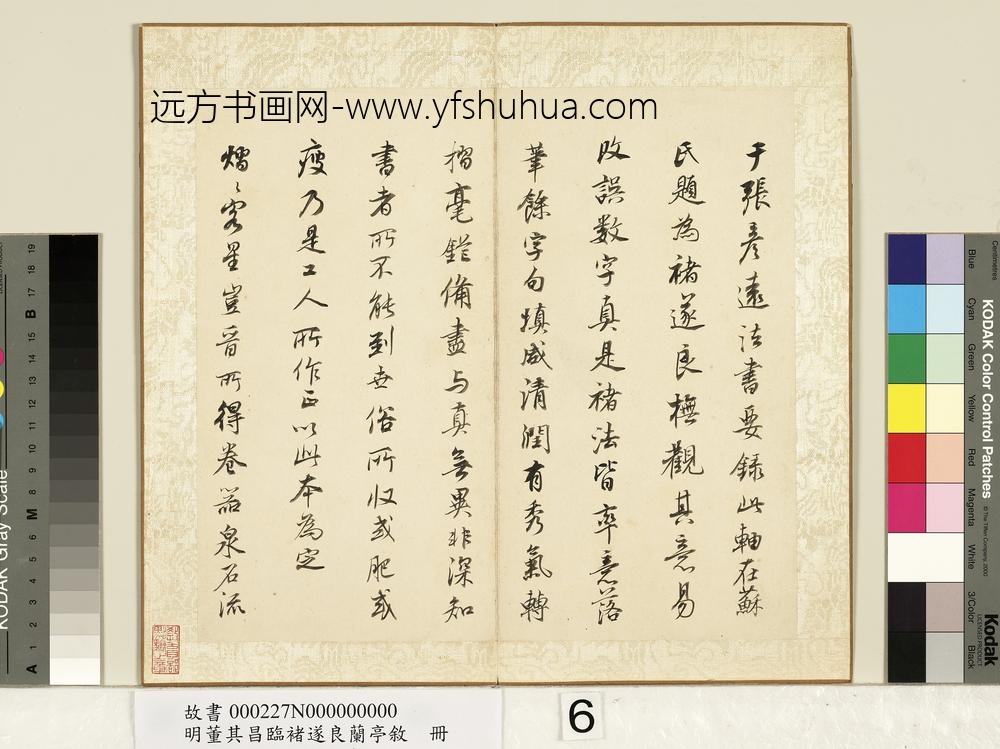 远方书画网-www.yfshuhua.com
于張彥遠法書要錄此軸在蘇
氏題為褚遂良橅觀其意易
改誤数字真是褚法皆率意落
筆餘字勾填咸清潤有秀氣轉
摺毫鋩備盡与真無異非深知
書者所不能到世俗所收或肥或
瘦乃是工人所作正以此本為定
熠〻客星豈晉所得卷器泉石流
故書 000227N000000000
明董其昌臨褚遂良蘭亭敘 冊
6
KODAK Color Control Patches
© The Tiffen Company, 2000
Kodak
LICENSED PRODUCT
Centimetres
Blue
Cyan
Green
Yellow
Red
Magenta
White
3/Color
Black
KODAK Gray Scale
A 1 2 3 4 5 6 M 8 9 10 11 12 13 14 15 B 17 18 19